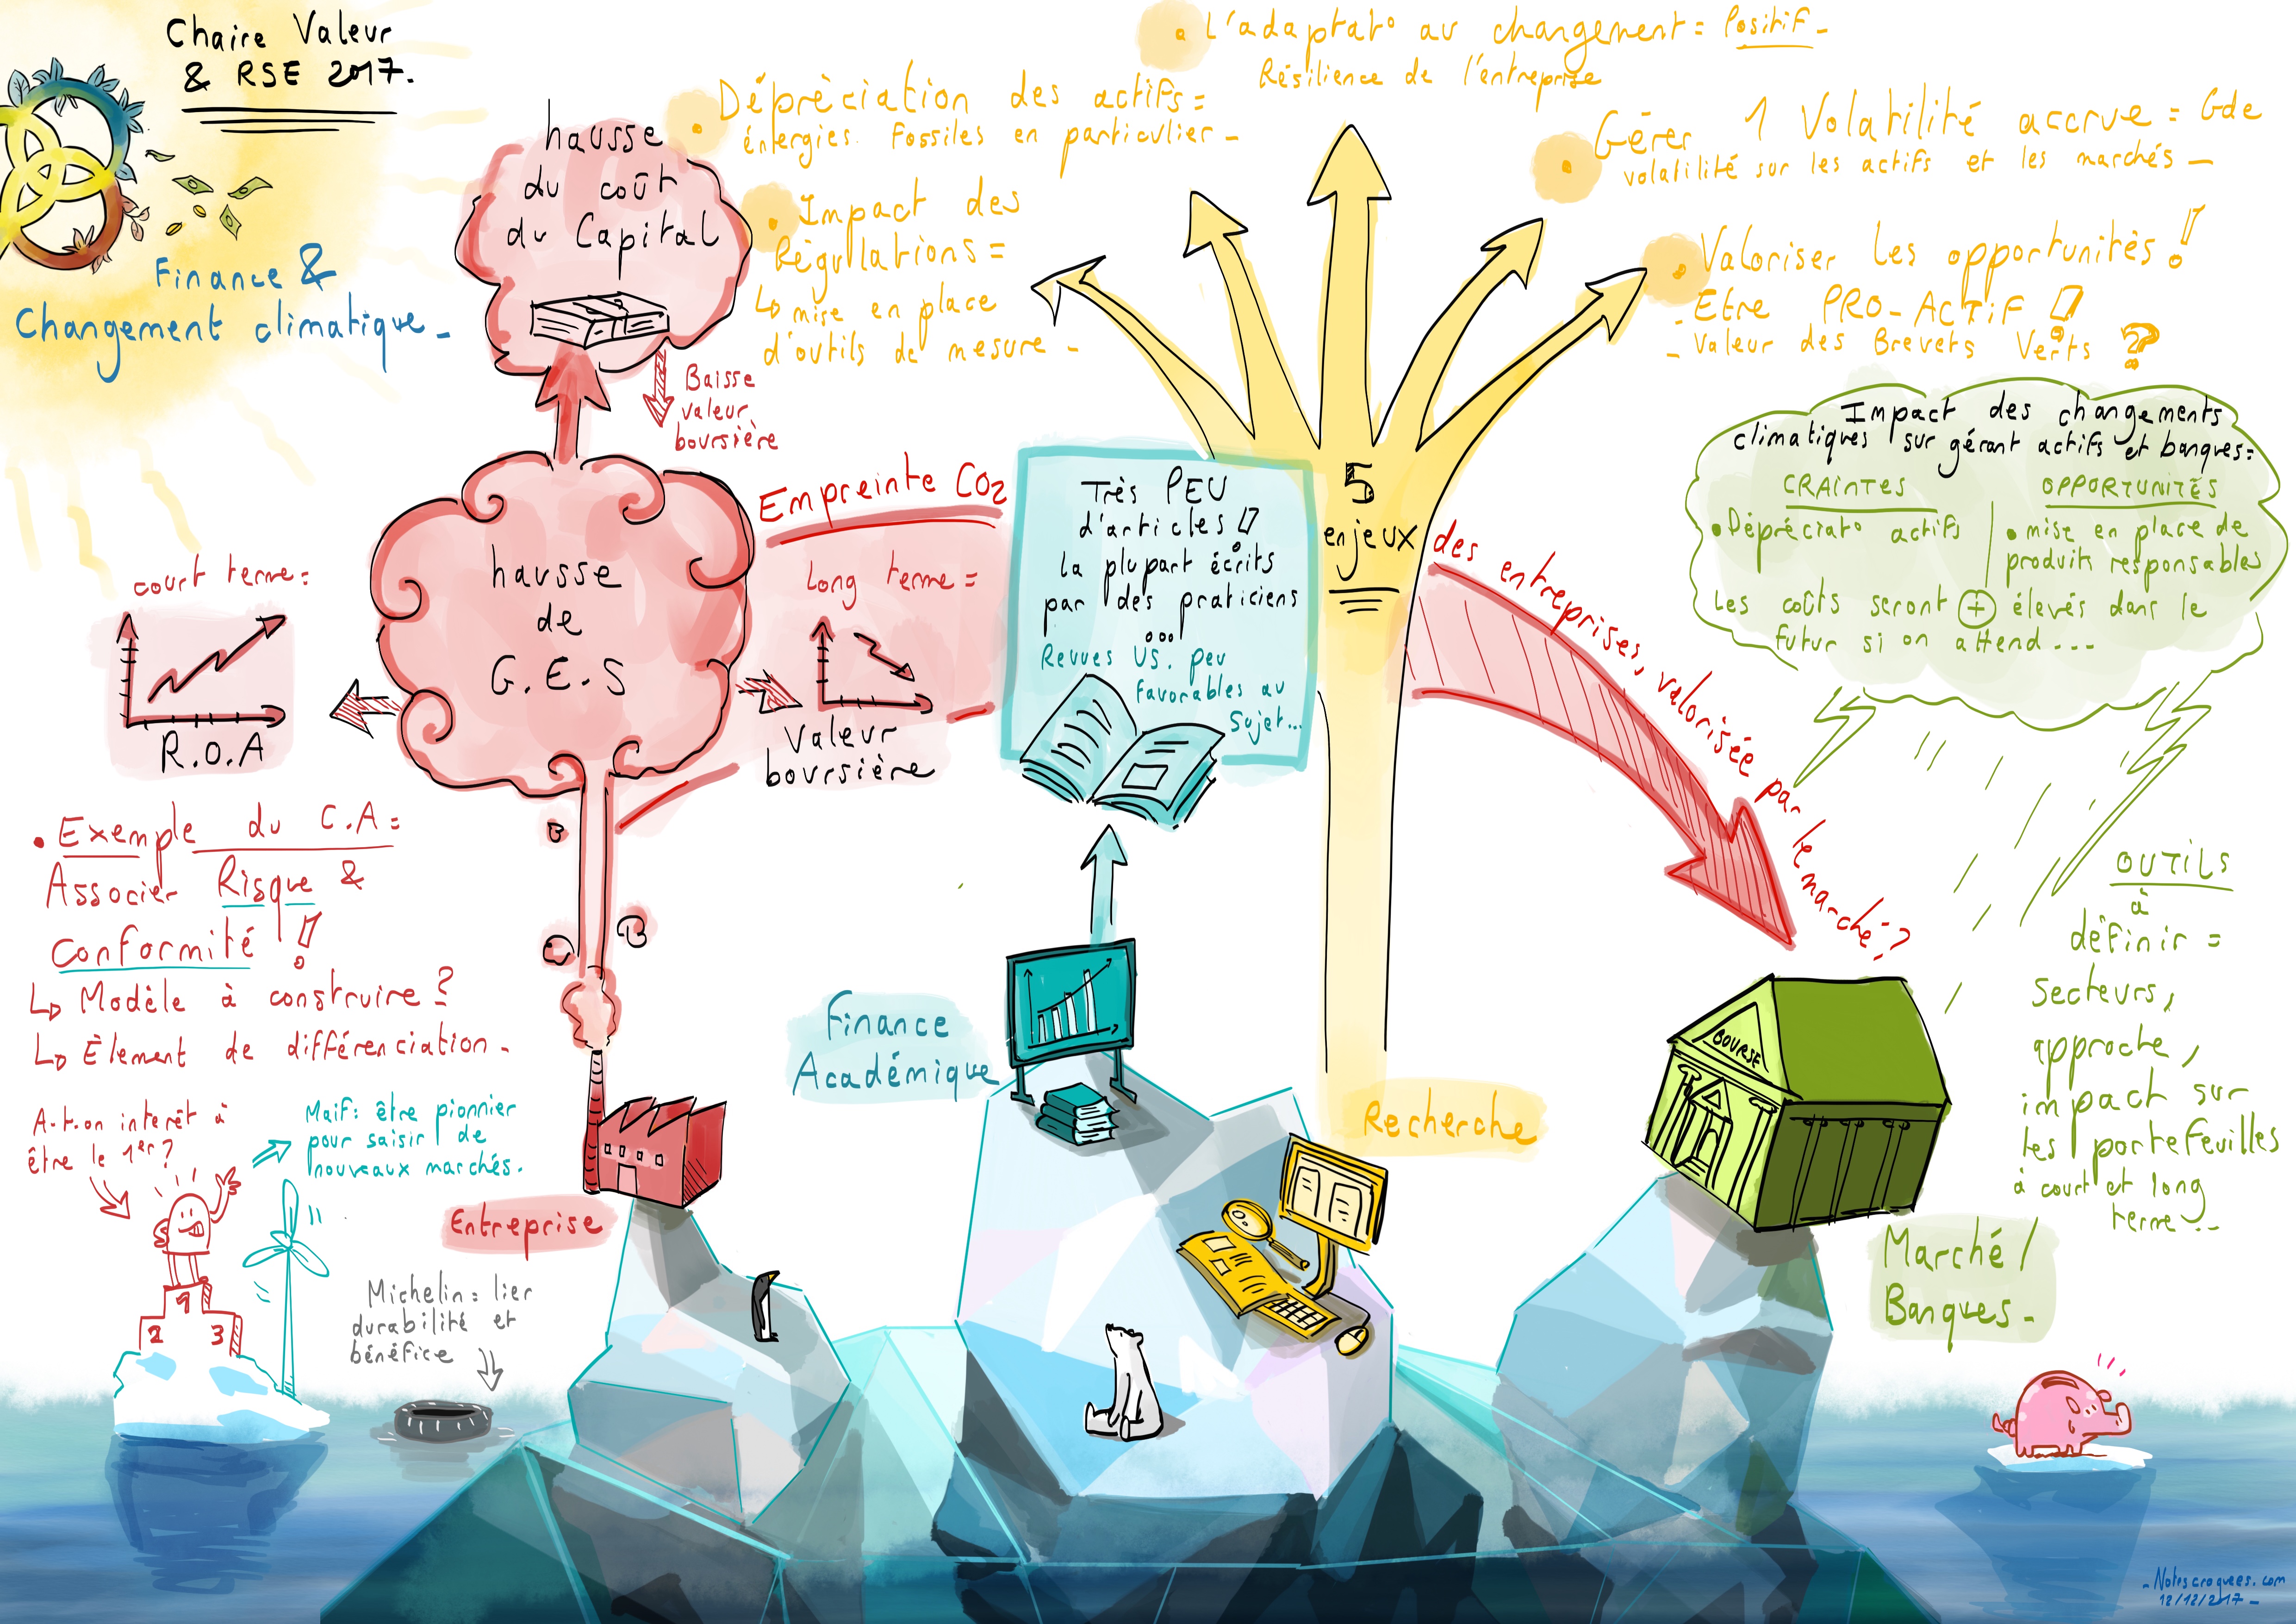 Chaire Valeur
& RSE 2017.
Finance &
Changement climatique_
hausse
du coût
du Capital
Baisse
valeur
boursière
hausse
de
G.E.S
court terme:
R.O.A
Empreinte CO2
Long terme =
Valeur
boursière
des entreprises, valorisée par le marché?
• Dépréciation des actifs =
énergies. Fossiles en particulier_
• Impact des
Régullations =
↳ mise en place
d'outils de mesure_
• L'adaptat° au changement = Positif_
Résilience de l'entreprise
• Gérer 1 Volatilité accrue = Gde
volatilité sur les actifs et les marchés_
• Valoriser les opportunités!
- Etre PRO-ACTIF!
- Valeur des Brevets Verts?
5
enjeux
Très PEU
d'articles!
la plupart écrits
par des praticiens
...
Revues US. peu
favorables au
Sujet...
Impact des changements
climatiques sur gérant actifs et banques=
CRAINTES
• Dépréciat° actifs
OPPORTUNITÉS
• mise en place de
produits responsables
Les coûts seront + élevés dans le
futur si on attend...
OUTILS
à
définir =
Secteurs,
approche,
impact sur
les portefeuilles
à court et long
terme..
• Exemple du C.A=
Associer Risque &
Conformité!
↳ Modèle à construire?
↳ Élement de différenciation.
A-t-on interêt à
être le 1er?
Maif: être pionnier
pour saisir de
nouveaux marchés.
1
2
3
Michelin= lier
durabilité et
bénéfice
Entreprise
Finance
Académique
Recherche
BOURSE
Marché/
Banques_
_Notescroquees.com
12/12/2017_